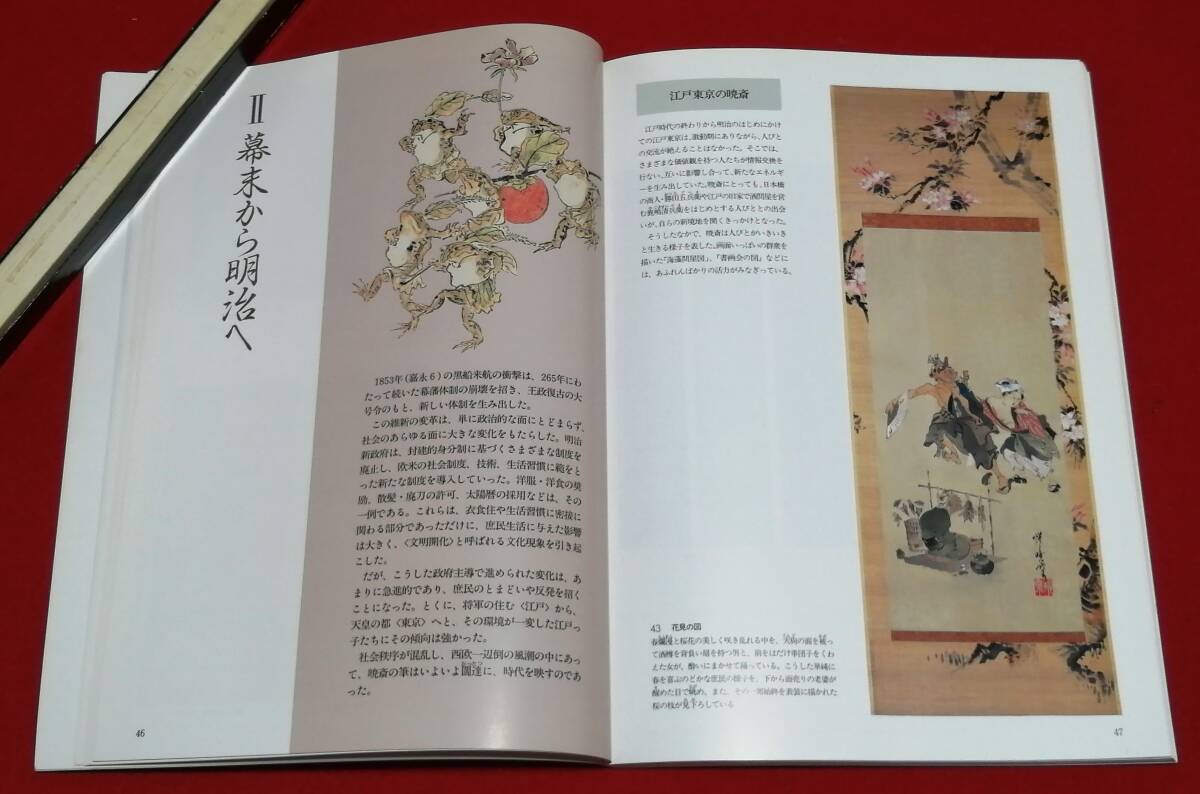 II 幕末から明治へ
1853年(嘉永6)の黒船来航の衝撃は、265年にわ
たって続いた幕藩体制の崩壊を招き、王政復古の大
号令のもと、新しい体制を生み出した。
この維新の変革は、単に政治的な面にとどまらず、
社会のあらゆる面に大きな変化をもたらした。明治
新政府は、封建的身分制に基づくさまざまな制度を
廃止し、欧米の社会制度、技術、生活習慣に範をと
った新たな制度を導入していった。洋服・洋食の奨
励、散髪・廃刀の許可、太陽暦の採用などは、その
一例である。これらは、衣食住や生活習慣に密接に
関わる部分であっただけに、庶民生活に与えた影響
は大きく、〈文明開化〉と呼ばれる文化現象を引き起
こした。
だが、こうした政府主導で進められた変化は、あ
まりに急進的であり、庶民のとまどいや反発を招く
ことになった。とくに、将軍の住む〈江戸〉から、
天皇の都〈東京〉へと、その環境が一変した江戸っ
子たちにその傾向は強かった。
社会秩序が混乱し、西欧一辺倒の風潮の中にあっ
て、暁斎の筆はいよいよ闊達に、時代を映すのであ
った。
46
江戸東京の暁斎
江戸時代の終わりから明治のはじめにかけ
ての江戸東京は、激動期にありながら、人びと
の交流が絶えることはなかった。そこでは、
さまざまな価値観を持つ人たちが情報交換を
行ない、互いに影響し合って、新たなエネルギ
ーを生み出していた。暁斎にとっても、日本橋
の商人・勝田五兵衛や江戸の旧家で酒問屋を営
む鹿嶋清兵衛をはじめとする人びととの出会
いが、自らの新境地を開くきっかけとなった。
そうしたなかで、暁斎は人びとがいきいき
と生きる様子を表した。画面いっぱいの群衆を
描いた「海藻問屋図」、「書画会の図」などに
は、あふれんばかりの活力がみなぎっている。
43 花見の図
春爛漫と桜花の美しく咲き乱れる中を、天狗の面を被っ
て酒樽を背負い扇を持つ男と、肩をはだけ串団子をくわ
えた女が、酔いにまかせて踊っている。こうした単純に
春を喜ぶのどかな庶民の様子を、下から面売りの老婆が
醒めた目で眺め、また、その一部始終を表装に描かれた
桜の枝が見下ろしている
47